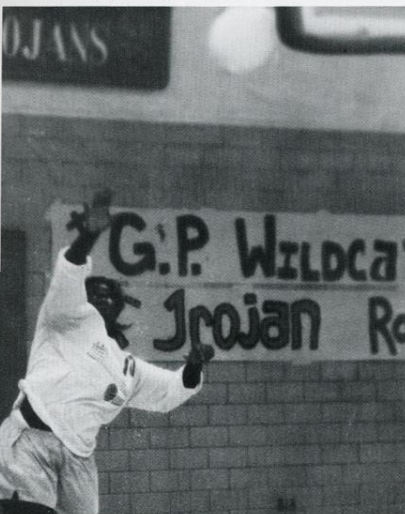 OJANS
G.P. WILDCA
Trojan Ro